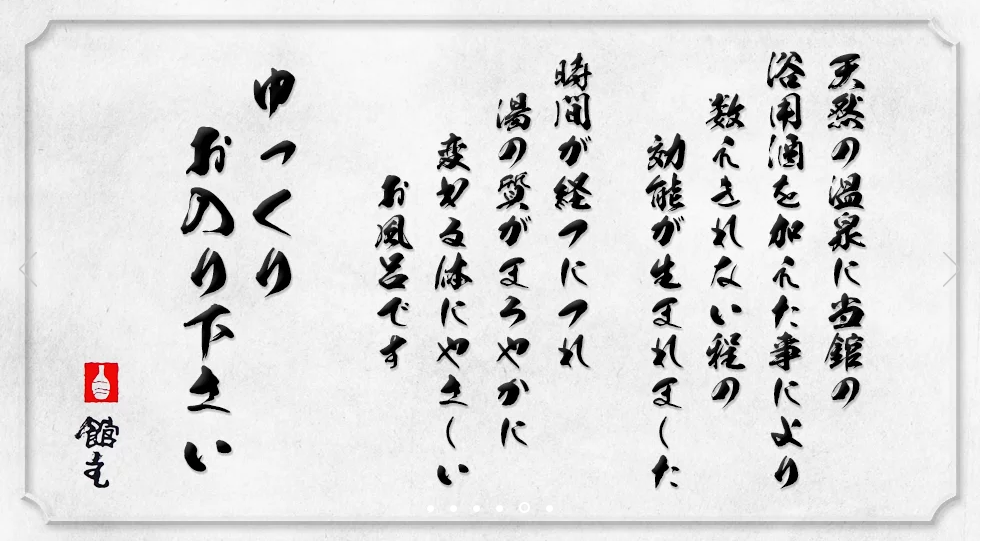 天然の温泉に当館の
浴用酒を加えた事により
数えきれない程の
効能が生まれました
時間が経つにつれ
湯の質がまろやかに
変わる体にやさしい
お風呂です
ゆっくり
おのり下さい
館主